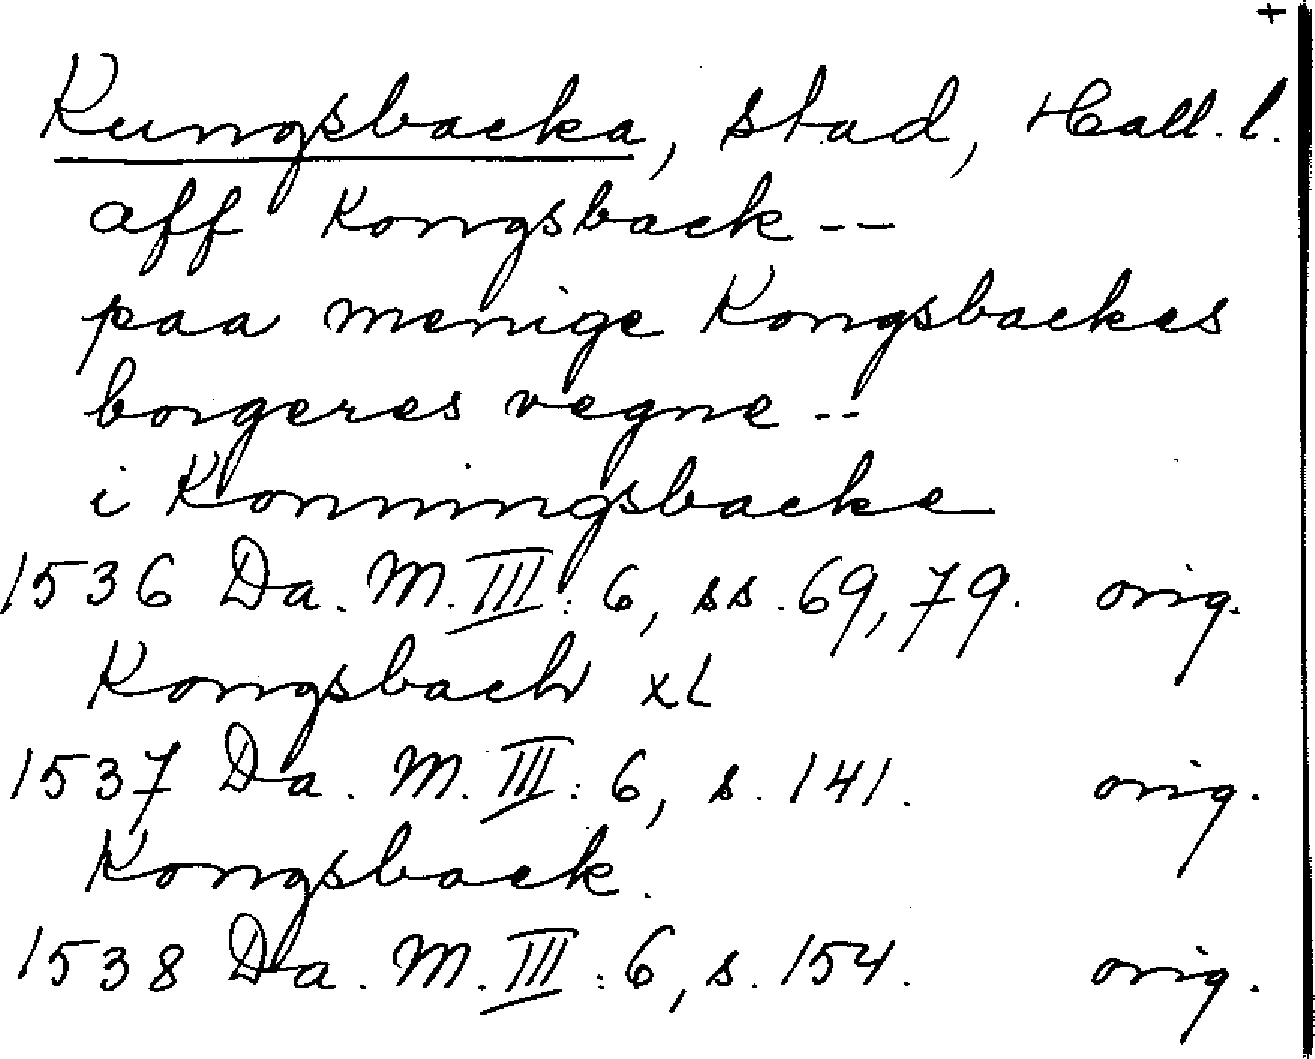 +
Kungsbacka, stad, Hall. l.
aff Kongsback --
paa menige Kongsbackes
borgeres vegne --
i Konningsbacke
1536 Da. M. III: 6, ss. 69, 79. orig.
Kongsbach xl
1537 Da. M. III: 6, s. 141. orig.
Kongsback.
1538 Da. M. III: 6, s. 154. orig.